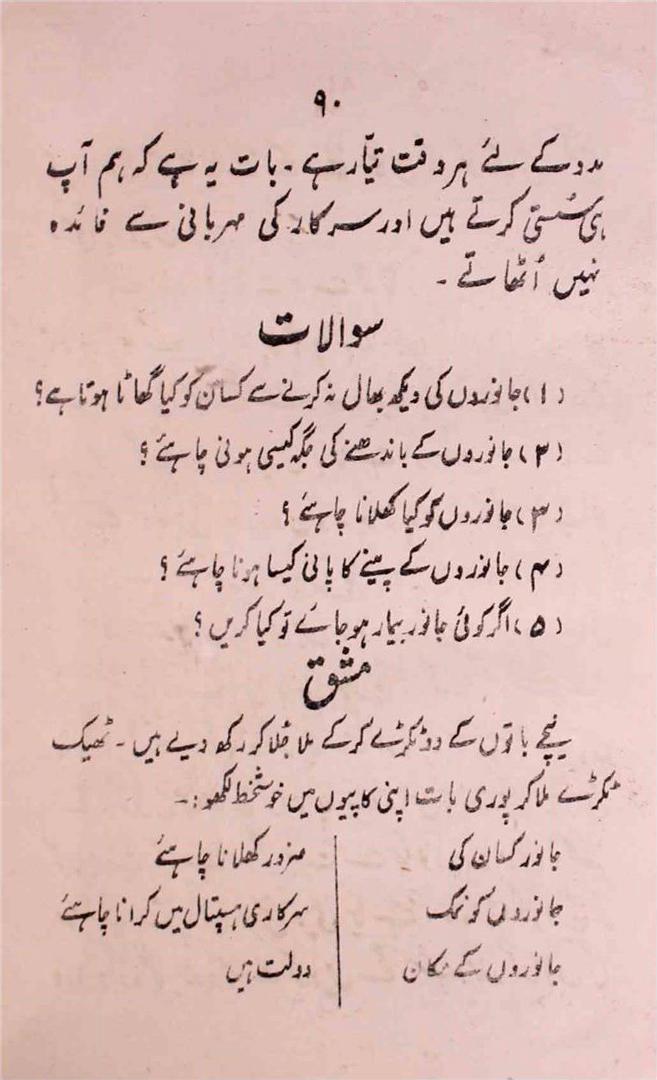 ۹۰
مدد کے لئے ہر وقت تیّار ہے ۔ بات یہ ہے کہ ہم آپ
ہی سُستی کرتے ہیں اور سرکار کی مہربانی سے فائدہ
نہیں اُٹھاتے ۔
سوالات
(۱) جانوروں کی دیکھ بھال نہ کرنے سے کسان کو کیا گھاٹا ہوتا ہے؟
(۲) جانوروں کے باندھنے کی جگہ کیسی ہونی چاہئے ؟
(۳) جانوروں کو کیا کھلانا چاہئے ؟
(۴) جانوروں کے پینے کا پانی کیسا ہونا چاہئے ؟
(۵) اگر کوئی جانور بیمار ہو جائے تو کیا کریں ؟
مشق
نیچے باتوں کے دو ٹکڑے کر کے ملا جُلا کر رکھ دیے ہیں ۔ ٹھیک
ٹکڑے ملا کر پوری بات اپنی کاپیوں میں خوشخط لکھو :۔
جانور کسان کی | ضرور کھلانا چاہئے
جانوروں کو نمک | سرکاری ہسپتال میں کرانا چاہئے
جانوروں کے مکان | دولت ہیں